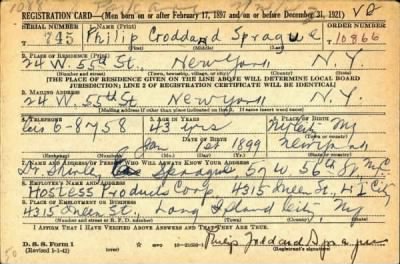 REGISTRATION CARD—(Men born on or after February 17, 1897 and on or before December 31, 1921)
SERIAL NUMBER 1. NAME (Print) ORDER NUMBER
745 Philip Croddard Sprague 10866
(First) (Middle) (Last)
2. PLACE OF RESIDENCE (Print)
24 W. 55th St. New York N.Y.
(Number and street) (Town, township, village, or city) (County) (State)
[THE PLACE OF RESIDENCE GIVEN ON THE LINE ABOVE WILL DETERMINE LOCAL BOARD
JURISDICTION; LINE 2 OF REGISTRATION CERTIFICATE WILL BE IDENTICAL]
3. MAILING ADDRESS
24 W. 55th St. New York N.Y.
(Mailing address if other than place indicated on line 2. If same insert word same)
4. TELEPHONE 5. AGE IN YEARS 6. PLACE OF BIRTH
6-8758 43 yrs
DATE OF BIRTH
Jan 1st 1899
(Exchange) (Number) (Mo.) (Day) (Yr.) (State or country)
7. NAME AND ADDRESS OF PERSON WHO WILL ALWAYS KNOW YOUR ADDRESS
Dr. Shirley Sprague 57 W. 56th St. N.Y.C.
8. EMPLOYER'S NAME AND ADDRESS
Hostess Products Corp. 4315 St. L I City
9. PLACE OF EMPLOYMENT OR BUSINESS
4315 St., Long Island City, NY
(Number and street or R. F. D. number) (Town) (County) (State)
I AFFIRM THAT I HAVE VERIFIED ABOVE ANSWERS AND THAT THEY ARE TRUE.
D. S. S. Form 1
(Revised 1-1-42) (over)
Philip Goddard Sprague
(Registrant's signature)